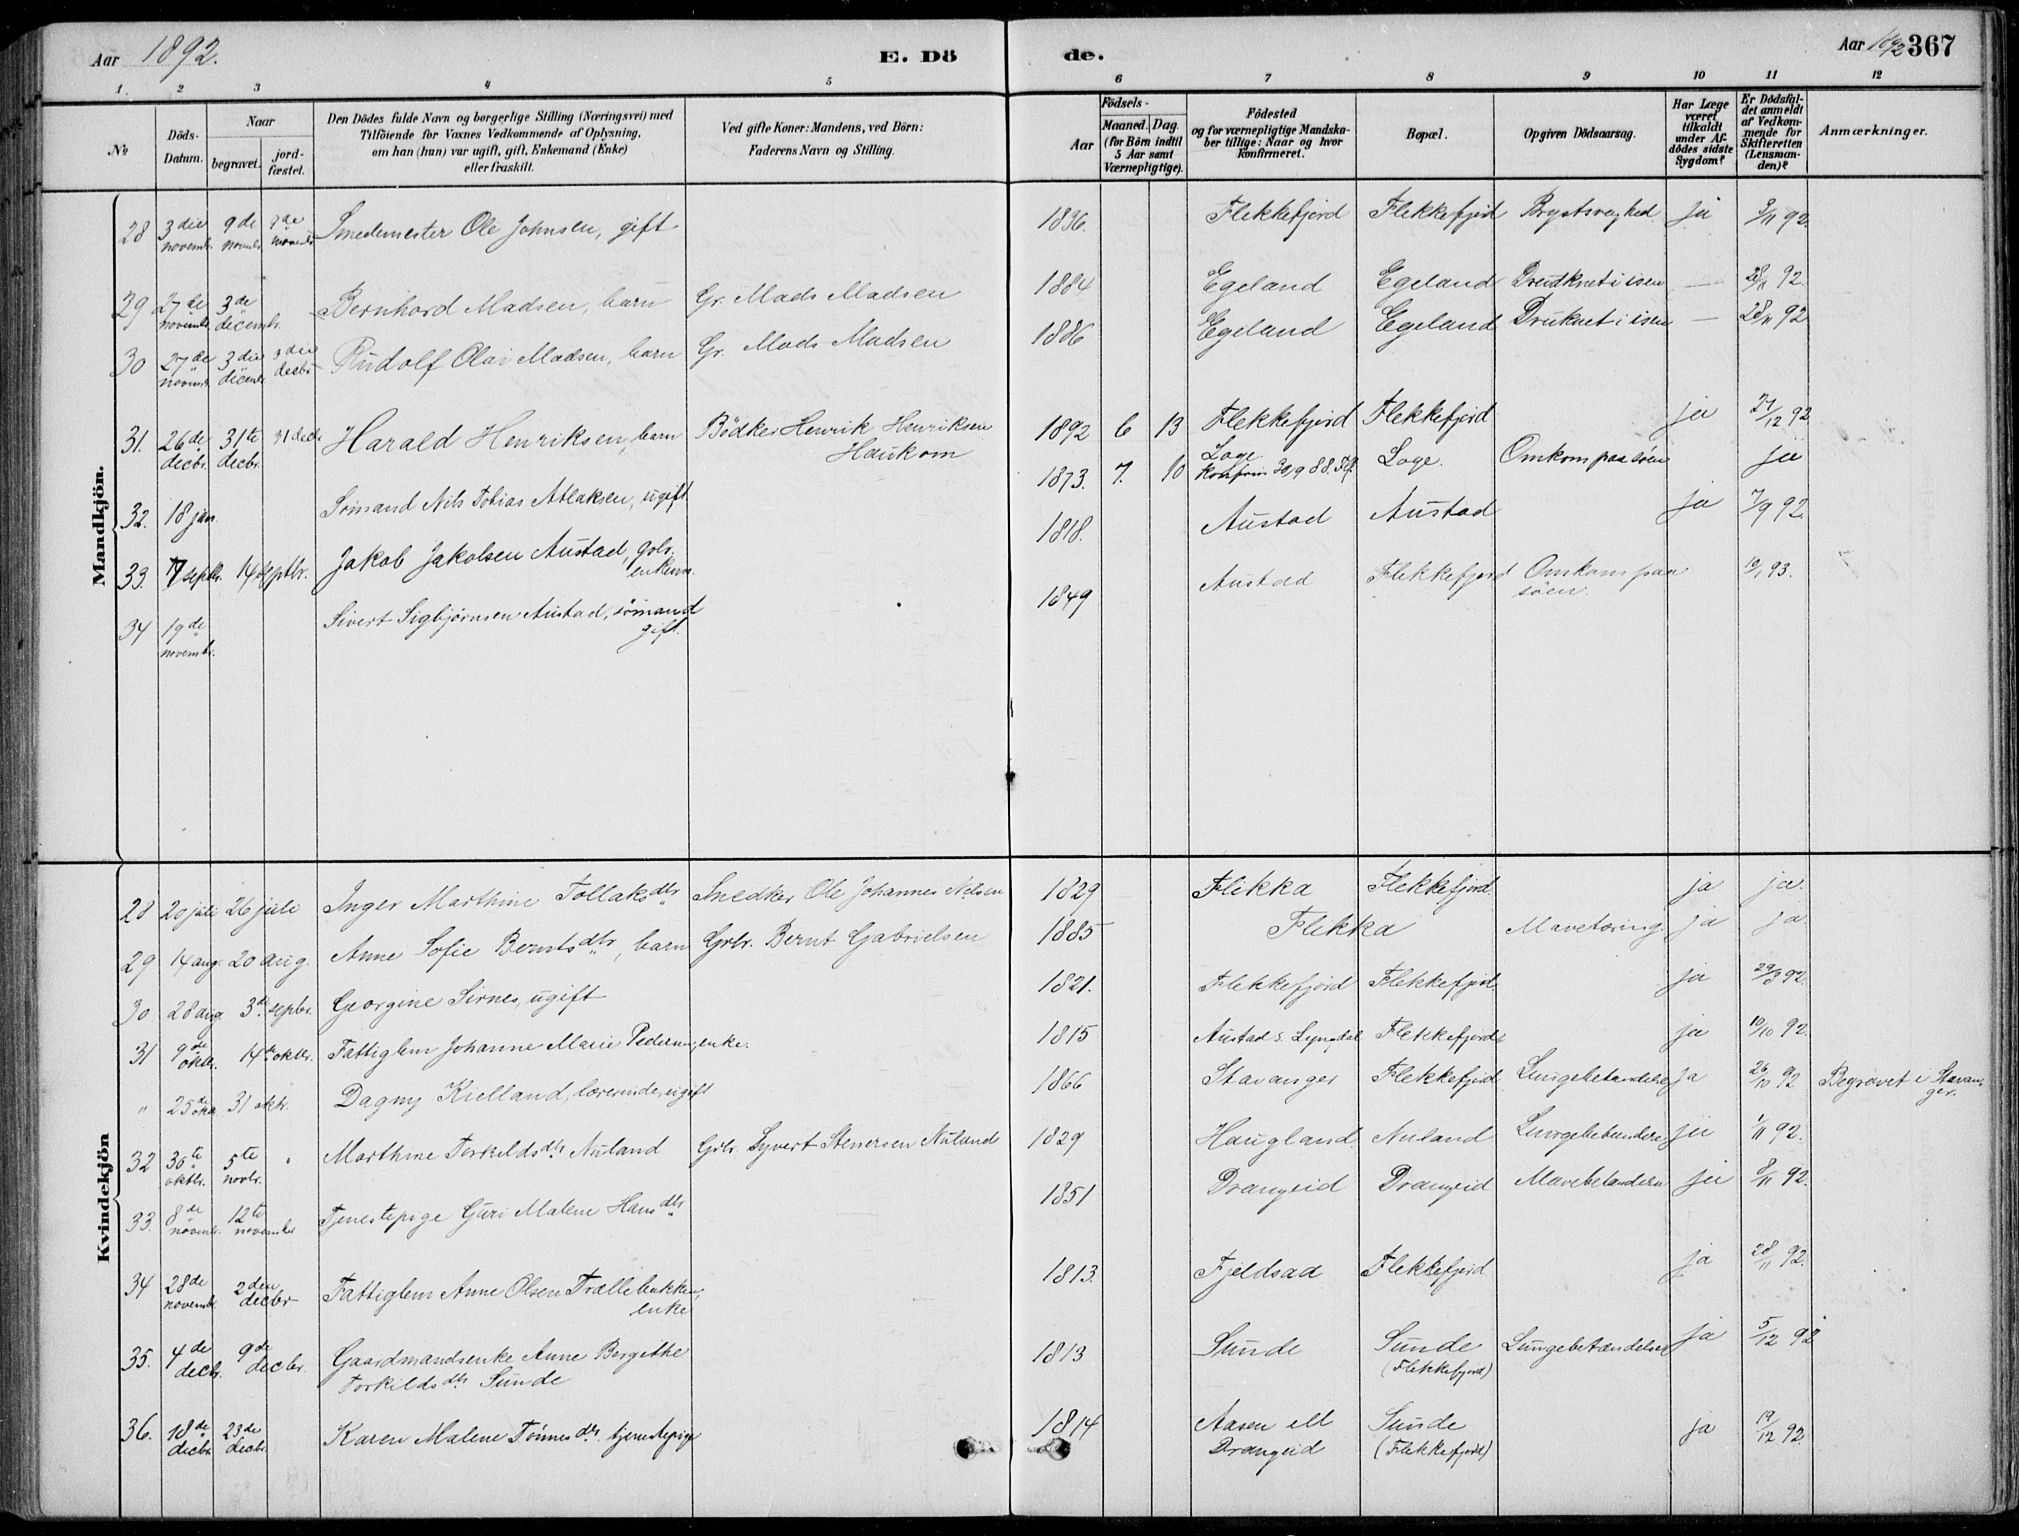 Aar 1892.
E. Dö
de.
Aar 1892 367
1. 2 3 4 5 6 7 8 9 10 11 12
No
Döds-Datum.
Naar
begravet.
jord-fæstet.
Den Dödes fulde Navn og borgerlige Stilling (Næringsvei) med
Tilföiende for Voxnes Vedkommende af Oplysning,
om han (hun) var ugift, gift, Enkemand (Enke)
eller fraskilt.
Ved gifte Koner: Mandens, ved Börn:
Faderens Navn og Stilling.
Födsels-
Aar
Maaned. Dag.
(for Börn indtil
5 Aar samt
Værnepligtige).
Födested
og for værnepligtige Mandska-
ber tillige: Naar og hvor
konfirmeret.
Bopæl.
Opgiven Dödsaarsag.
Har Læge
været
tilkaldt
under Af-
dödes sidste
Sygdom?
Er Dödsfal-
det anmeldt
af Vedkom-
mende for
Skifteretten
(Lensman-
den)?
Anmærkninger.
Mandkjön.
28 3die novembr. 9de novembr. 9de novembr. Smedemester Ole Johnsen, gift 1836. Flekkefjord Flekkefjord Brystsvaghed. ja 9/11 92.
29 27de novembr. 3de decembr. Bernhard Madsen, barn Gr. Mads Madsen 1884 Egeland Egeland Druknet i isen — 28/11 92.
30 27de novembr. 3die decembr. 3die decbr. Rudolf Olai Madsen, barn Gr. Mads Madsen 1886 Egeland Egeland Druknet i isen — 28/11 92
31. 26de decbr. 31te decbr. 31 decbr. Harald Henriksen, barn Bödker Henrik Henriksen
Haukom 1892 6 13 Flekkefjord Flekkefjord ja 27/12 92
32. 18 jan Sömand Nils Tobias Atlaksen, ugift 1873. 7. 10 Loge
Konfirm. 30/9 88. Fl. Loge. Omkom paa söen ja
33. 7 septbr. 14 septbr. Jakob Jakobsen Austad, gbr.
enkem. 1818. Austad Austad ja 7/9 92.
34 19de novembr. Sivert Sigbjörnsen Austad, sömand
gift. 1849 Austad Flekkefjord Omkom paa
söen. 10/1 93.
Kvindekjön
28 20 juli 26 juli Inger Marthine Tollaksdtr Snedker Ole Johannes Nilsen 1829 Flikka Flekkefjord. ja ja.
29 14 aug. 20 aug. Anne Sofie Berntsdtr, barn Grbr. Bernt Gabrielsen 1885 Flikka Mavetæring. ja ja
30 28 aug 3de septbr. Georgine Sirnes, ugift 1821. Flekkefjord Flekkefjord. ja 29/8 92.
31 9de oktbr. 14de oktbr. Fattiglem Johanne Marie Pedersen, enke. 1815 Austad s. Lyngdal Flekkefjord ja 10/10 92.
" 25de okt. 31 oktr. Dagny Kielland, lærerinde, ugift 1866 Stavanger Flekkefjord Lungebetændelse ja 26/10 92 Begravet i Stavan-
ger.
32 30te oktbr. 5te novbr. Marthine Torkildsdtr Nuland Grbr. Syvert Stenersen Nuland 1829 Haugland Nuland Lungebetændelse ja 1/11 92.
33. 8de novembr. 12te november Tjenestepige Guri Malene Hansdtr 1851 Drangeid Drangeid Mavebetændelse ja 9/11 92.
34 28de novembr. 2den decbr Fattiglem Anne Olsen Trællebakken,
enke 1813. Fjeldsaa Flekkefjord ja 28/11 92.
35. 4de decbr. 9de decbr. Gaardmandsenke Anne Bergithe
Torkildsdtr Sunde 1813 Sunde Sunde
(Flekkefjord) Lungebetændelse ja 5/12 92
36. 18de decbr. 23de decbr. Karen Malene Tönnesdtr. tjenestepige 1814 Aasen ell
Drangeid Sunde
(Flekkefjord) ja 19/12 92.